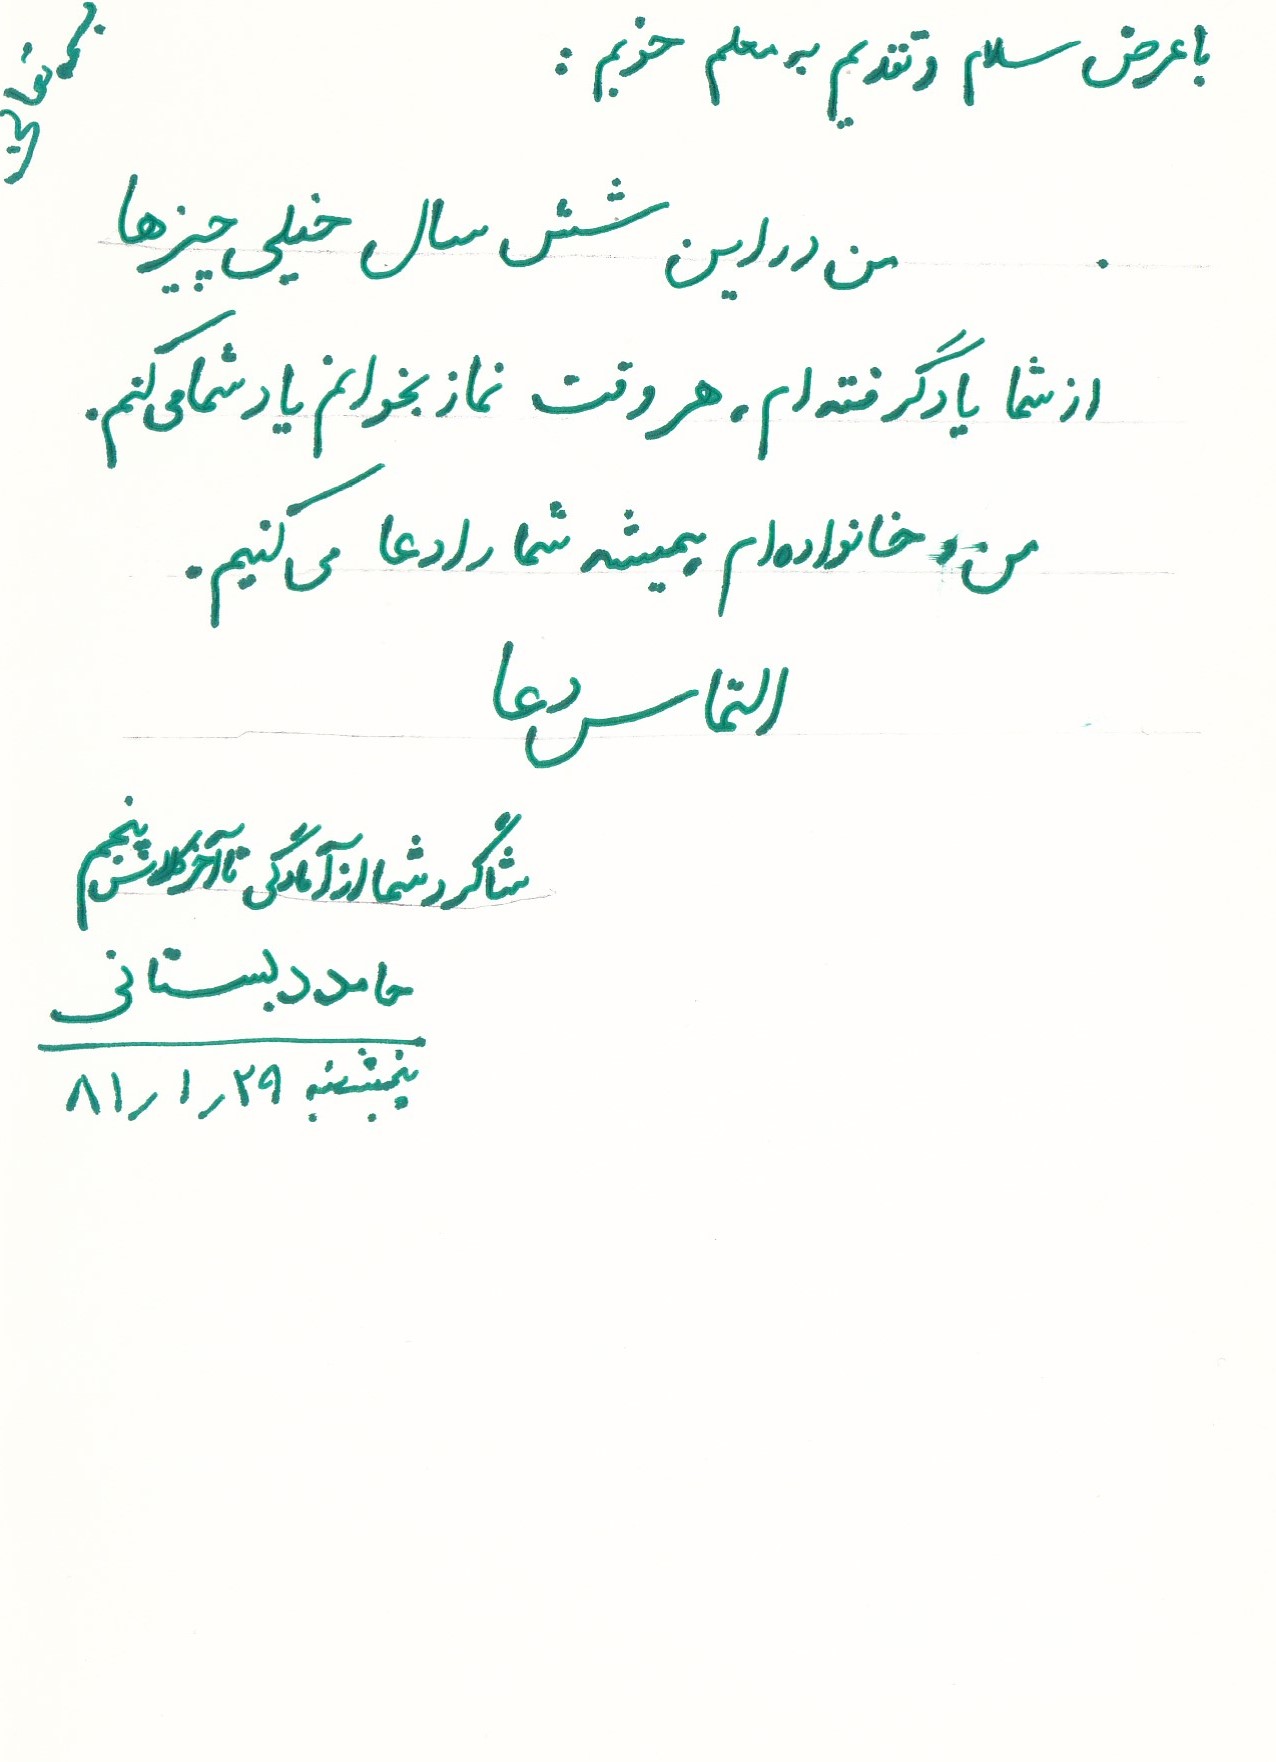 با عرض سلام و تقدیم به معلم خوبم :
من در این شش سال خیلی چیزها
از شما یاد گرفته ام. هر وقت نماز بخوانم یاد شما می کنم.
من و خانواده ام همیشه شما را دعا می کنیم.
التماس دعا
شاگرد شما از آمادگی تا آخر کلاس پنجم
حامد دبستانی
پنجشنبه ۸۱/۱/۲۹